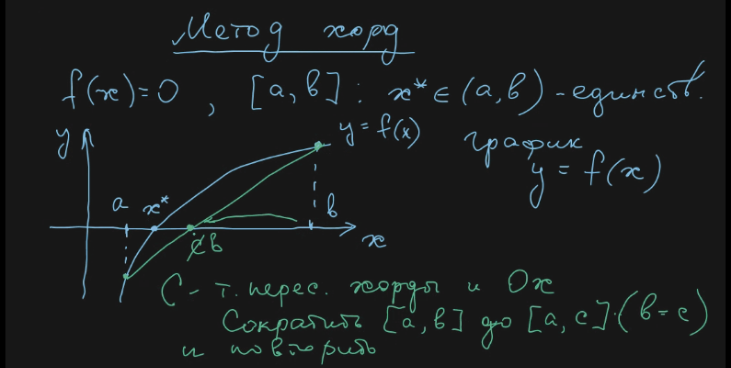 Метод хорд
f(x)=0 , [a,b] : x* ∈ (a,b) - единств.
y
y=f(x)
график
y = f(x)
a x* b
x
c b
C - т. перес. хорды и Ox
Сократить [a,b] до [a,c] (b=c)
и повторить